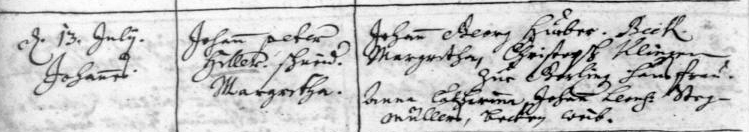 d. 13. July.
Johannes.
Johann peter
Hiller. schneid.
Margretha.
Johann Georg Hueber. Beck
Margretha, Christoph Klingen
zue Haus frau.
Anna Catharina, Johann Steg-
müllers, becken weib.